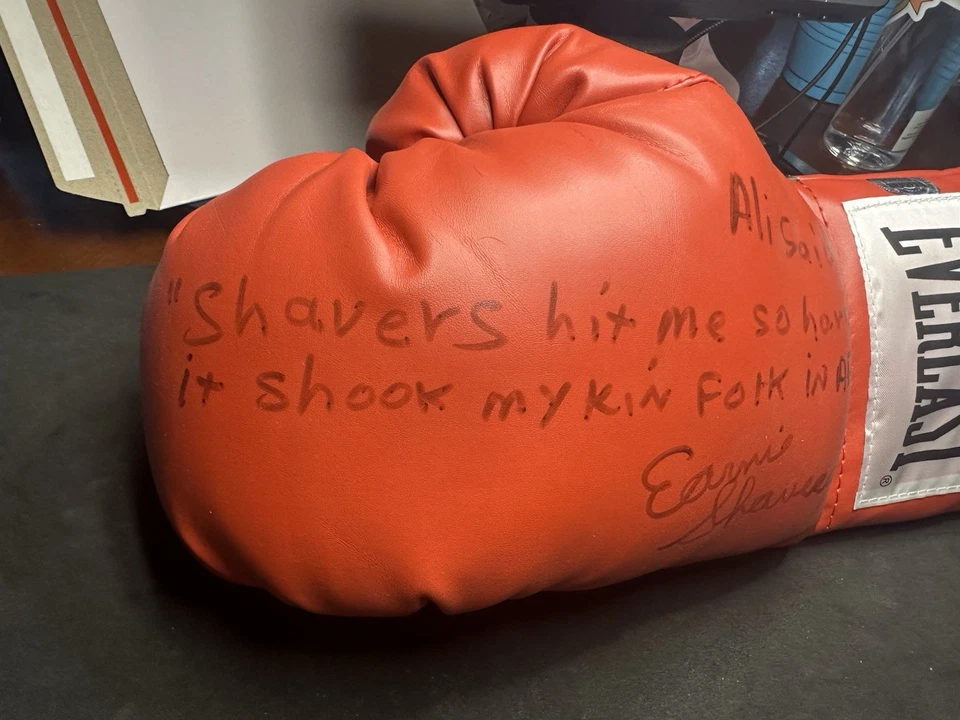 Ali Said
"Shavers hit me so har
it shook my kin Folk iN Af
Earnie
Shavers
EVERLAST
®